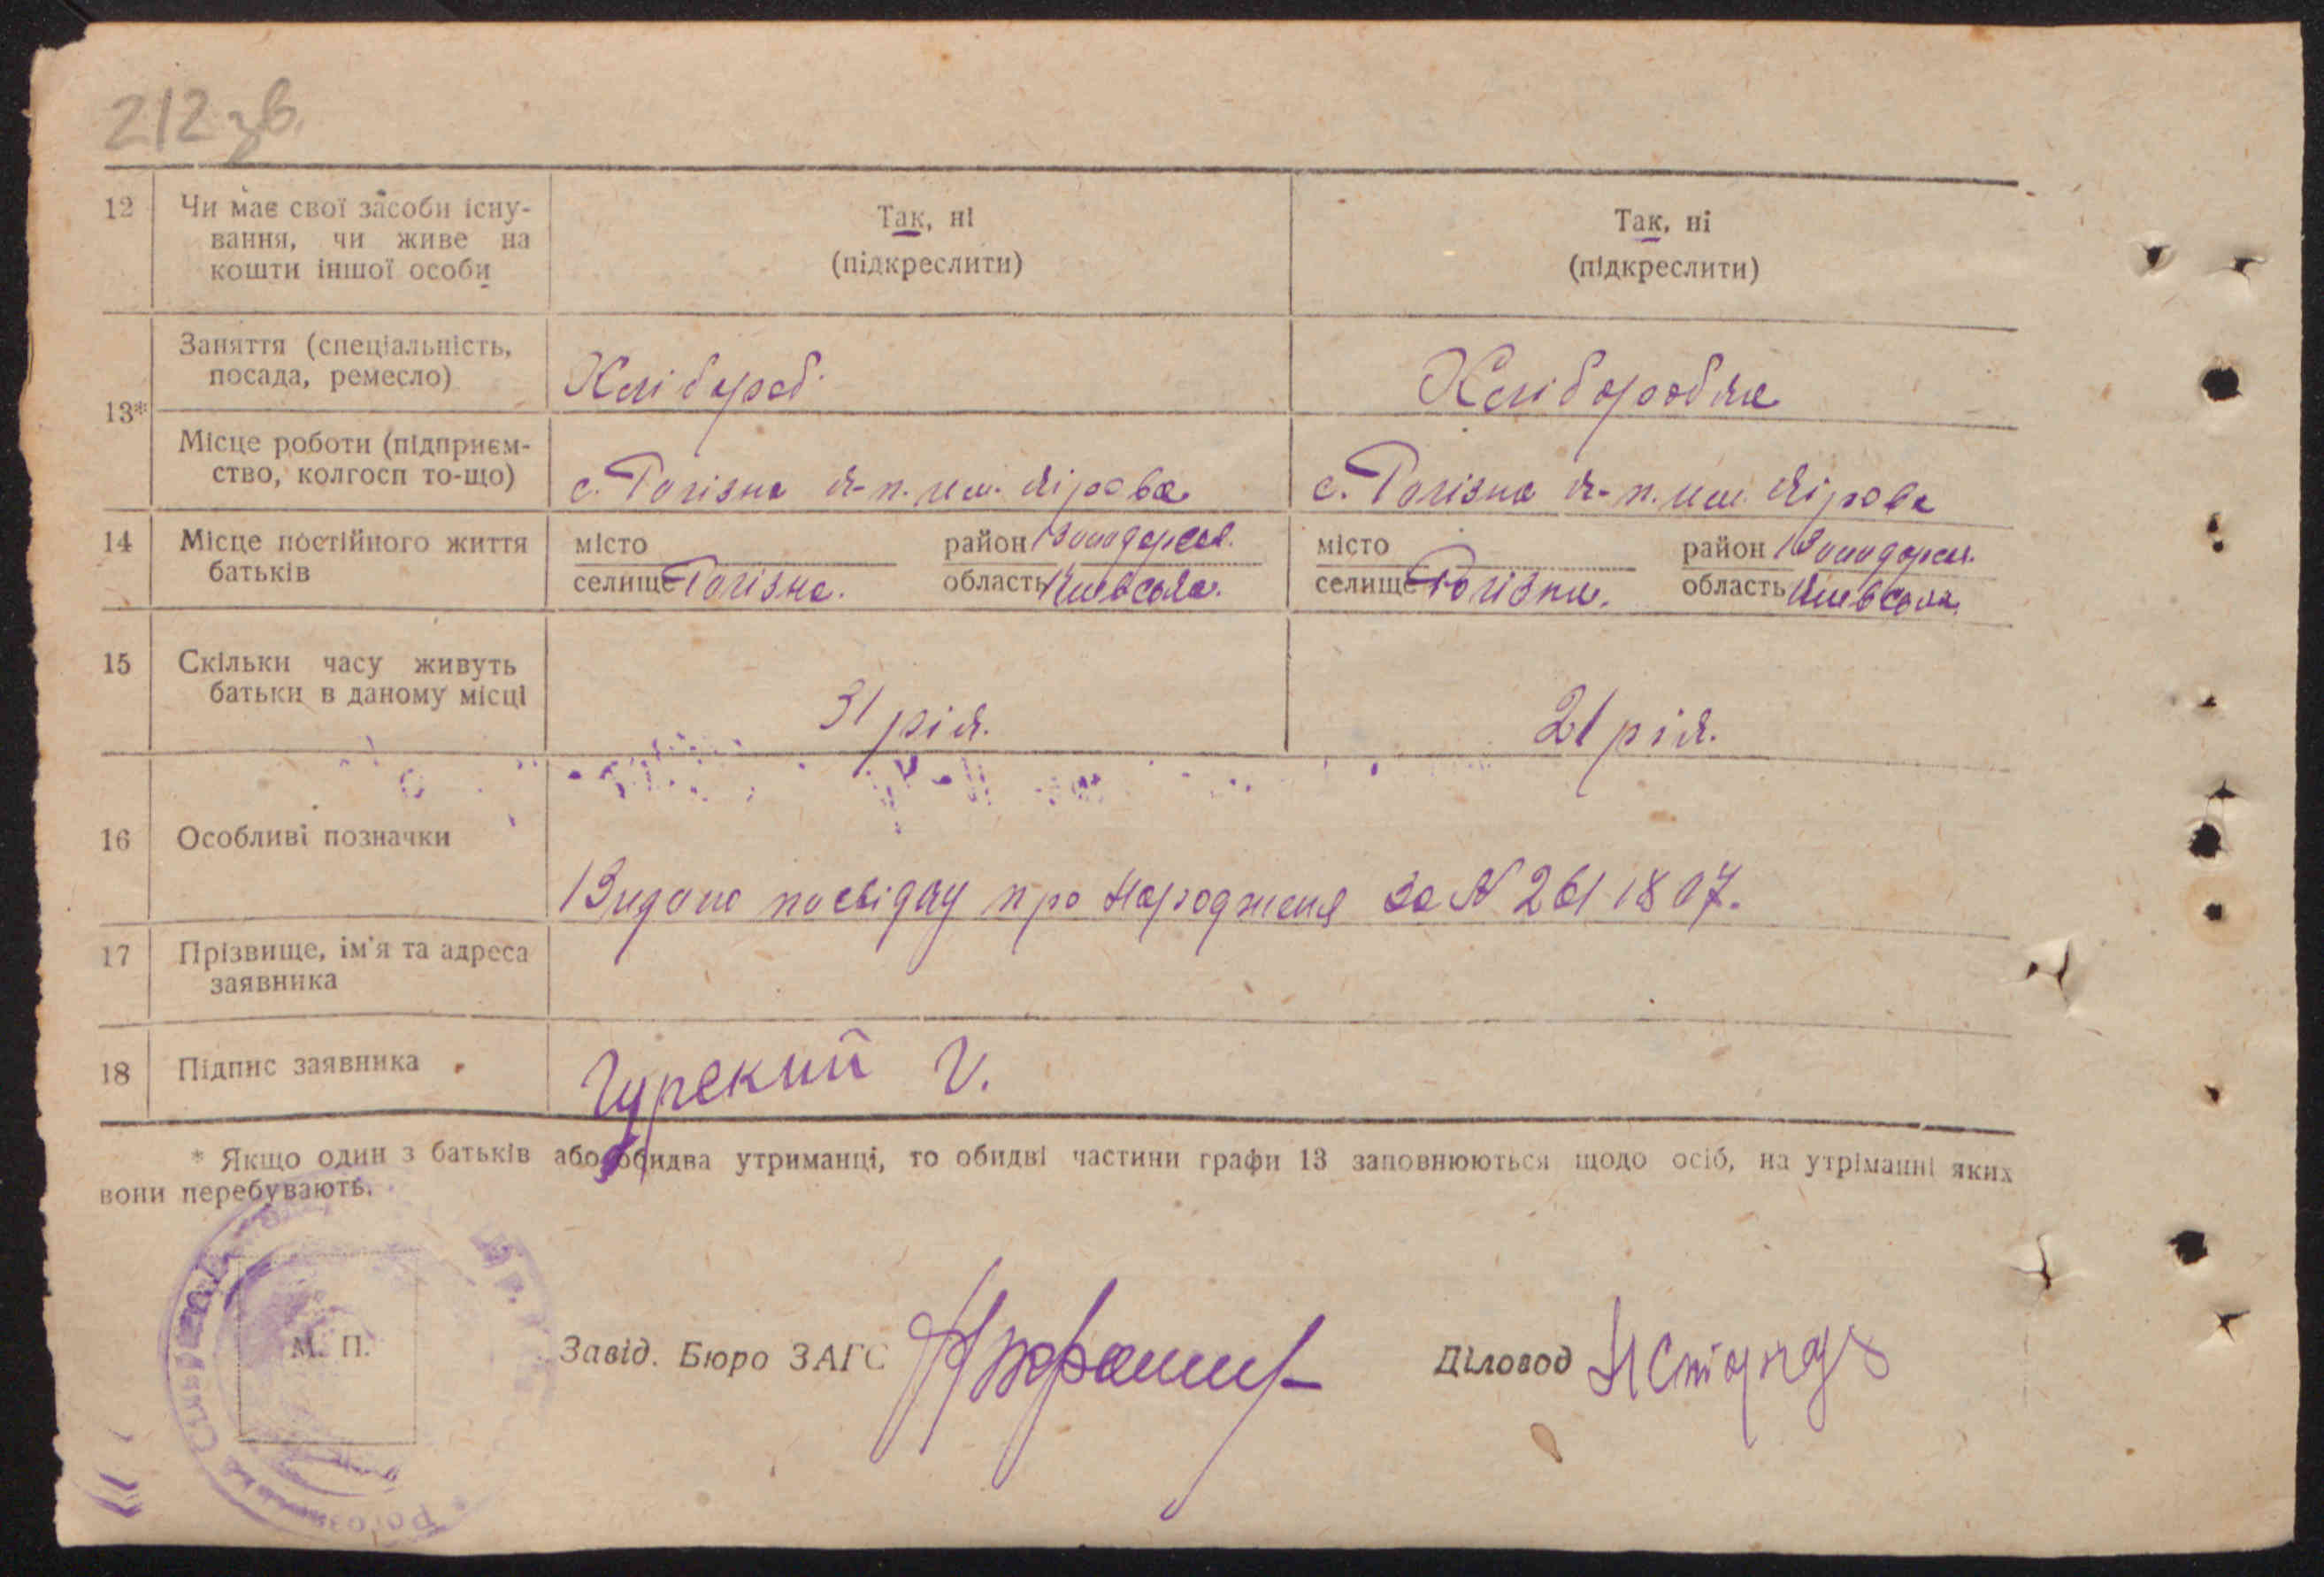 212 зв.
12 Чи має свої засоби існу- Так, ні Так, ні
вання, чи живе на (підкреслити) (підкреслити)
кошти іншої особи
Заняття (спеціальність,
посада, ремесло) Хлібороб Хліборобка
13*
Місце роботи (підприєм-
ство, колгосп то-що) с. Рогізна к-п. им. Кірова с. Рогізна к-п. им. Кірова
14 Місце постійного життя місто район місто район
батьків селище Рогізна. область Киевська. селище Рогізна. область Киевська.
15 Скільки часу живуть
батьки в даному місці 31 рік. 21 рік.
16 Особливі позначки
Видано посвідку про народженя за № 261 1807.
17 Прізвище, ім'я та адреса
заявника
18 Підпис заявника Гурский
* Якщо один з батьків або обидва утриманці, то обидві частини графи 13 заповнюються щодо осіб, на утріманні яких
вони перебувають.
М. П.
Завід. Бюро ЗАГС Діловод